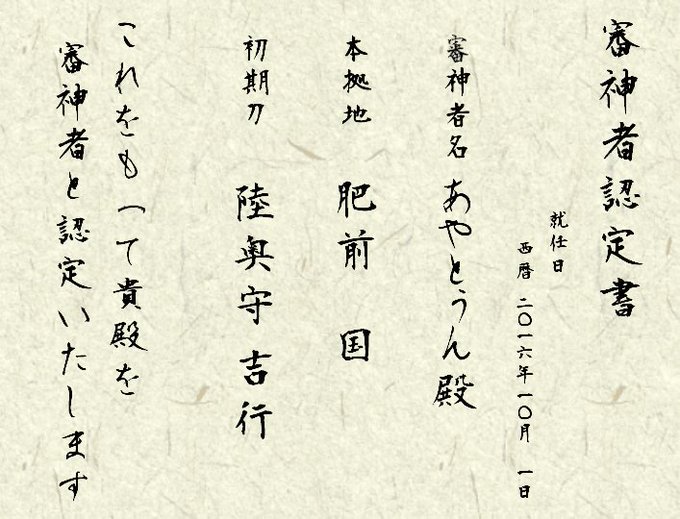 審神者認定書
就任日
西暦 二〇一六年一〇月 一日
審神者名 あやとうん殿
本拠地 肥前 国
初期刀 陸奥守吉行
これをもって貴殿を
審神者と認定いたします